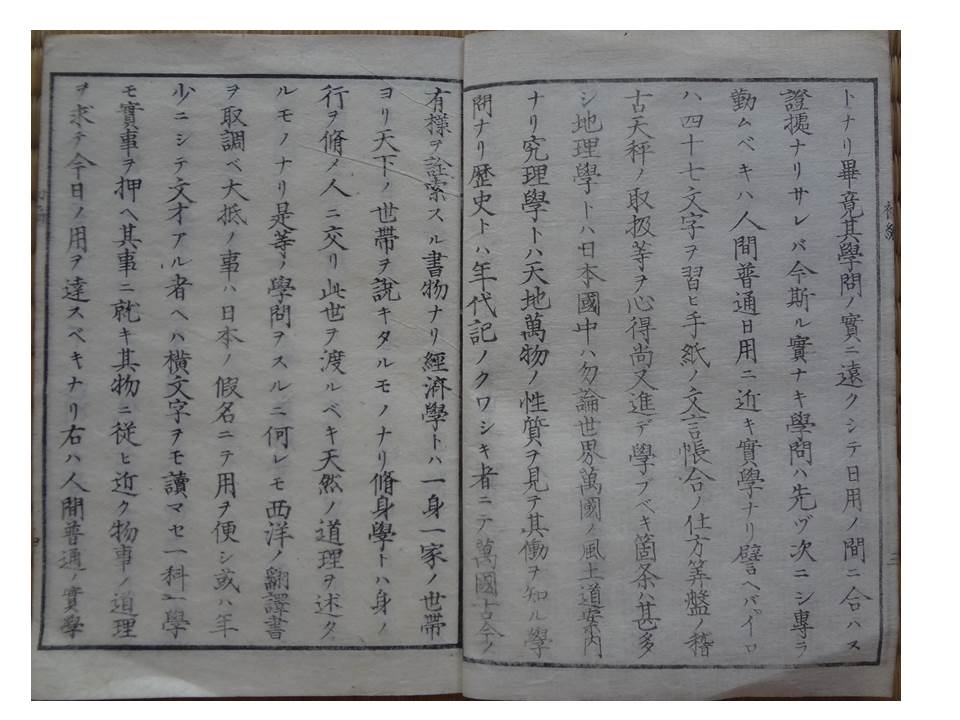 トナリ畢竟其學問ノ實ニ遠クシテ日用ノ間ニ合ハス
證據ナリサレバ今斯ル實ナキ學問ハ先ヅ次ニシ專ラ
勤ムベキハ人間普通日用ニ近キ實學ナリ譬ヘバイロ
ハ四十七文字ヲ習ヒ手紙ノ文言帳合ノ仕方算盤ノ稽
古天秤ノ取扱等ヲ心得尚又進デ學ブベキ箇条ハ甚多
シ地理學トハ日本國中ハ勿論世界萬國ノ風土道案内
ナリ究理學トハ天地萬物ノ性質ヲ見テ其働ヲ知ル學
問ナリ歴史トハ年代記ノクワシキ者ニテ萬國古今ノ
有樣ヲ詮索スル書物ナリ經済學トハ一身一家ノ世帯
ヨリ天下ノ世帯ヲ說キタルモノナリ脩身學トハ身ノ
行ヲ脩メ人ニ交リ此世ヲ渡ルベキ天然ノ道理ヲ述タ
ルモノナリ是等ノ學問ヲスルニ何レモ西洋ノ翻譯書
ヲ取調ベ大抵ノ事ハ日本ノ假名ニテ用ヲ便シ或ハ年
少ニシテ文才アル者ヘハ横文字ヲモ讀マセ一科一學
モ實事ヲ押ヘ其事ニ就キ其物ニ従ヒ近ク物事ノ道理
ヲ求テ今日ノ用ヲ達スベキナリ右ハ人間普通ノ實學
三